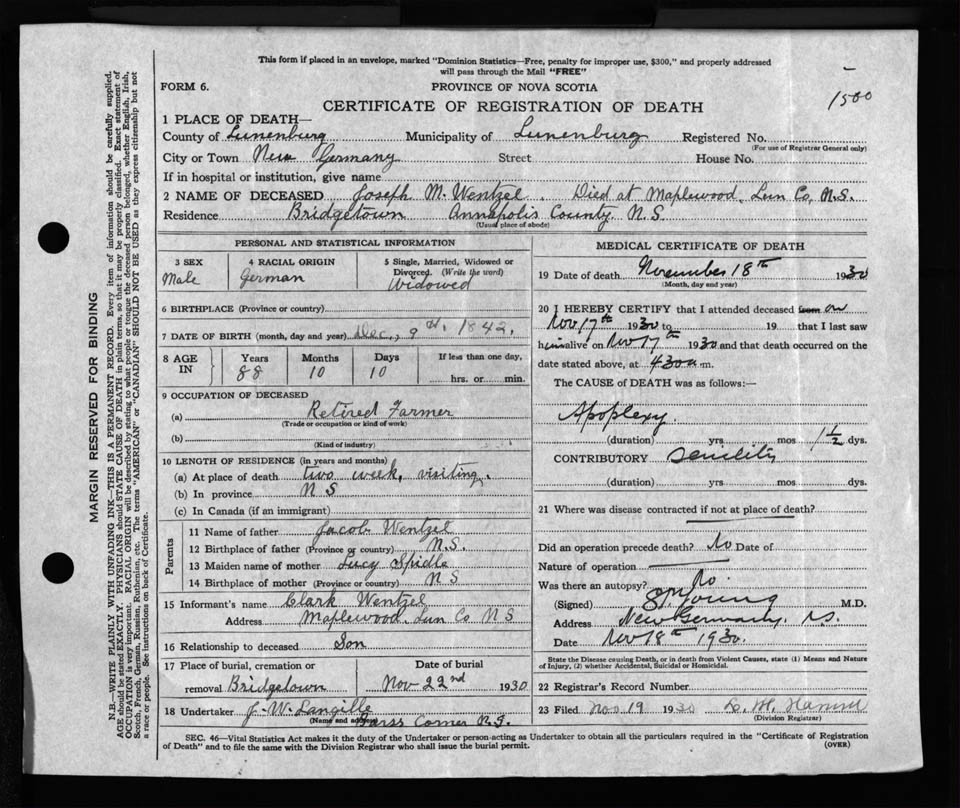 This form if placed in an envelope, marked "Dominion Statistics—Free, penalty for improper use, $300," and properly addressed
will pass through the Mail "FREE"
1500
FORM 6.
PROVINCE OF NOVA SCOTIA
CERTIFICATE OF REGISTRATION OF DEATH
1 PLACE OF DEATH—
County of Lunenburg Municipality of Lunenburg Registered No.
(For use of Registrar General only)
City or Town New Germany Street House No.
If in hospital or institution, give name
2 NAME OF DECEASED Joseph M. Wentzel. Died at Maplewood, Lun Co, N.S.
Residence Bridgetown Annapolis County, N.S.
(Usual place of abode)
PERSONAL AND STATISTICAL INFORMATION
3 SEX
Male
4 RACIAL ORIGIN
German
5 Single, Married, Widowed or
Divorced. (Write the word)
Widowed
6 BIRTHPLACE (Province or country)
7 DATE OF BIRTH (month, day and year) Dec., 9th, 1842.
8 AGE
IN
Years
88
Months
10
Days
10
If less than one day,
hrs. or min.
9 OCCUPATION OF DECEASED
(a) Retired Farmer
(Trade or occupation or kind of work)
(b)
(Kind of industry)
10 LENGTH OF RESIDENCE (in years and months)
(a) At place of death two week, visiting.
(b) In province N S
(c) In Canada (if an immigrant)
Parents
11 Name of father Jacob Wentzel
12 Birthplace of father (Province or country) N.S.
13 Maiden name of mother Lucy Spidle
14 Birthplace of mother (Province or country) N S
15 Informant's name Clark Wentzel
Address Maplewood, Lun Co N S
16 Relationship to deceased Son
17 Place of burial, cremation or
removal Bridgetown
Date of burial
Nov 22nd 1930
18 Undertaker J. W. Langille
(Name and address) Barss Corner N.S.
MEDICAL CERTIFICATE OF DEATH
19 Date of death November 18th 1930
(Month, day and year)
20 I HEREBY CERTIFY that I attended deceased from on
Nov 17th 1930 to 19 that I last saw
him alive on Nov 17th 1930 and that death occurred on
date stated above, at 4 30 a.m.
The CAUSE of DEATH was as follows:—
Apoplexy.
(duration) yrs mos 1 1/2 dys.
CONTRIBUTORY Senility
(duration) yrs mos dys.
21 Where was disease contracted if not at place of death?
Did an operation precede death? No Date of
Nature of operation
Was there an autopsy? No.
(Signed) Young M.D.
Address New Germany, N.S.
Date Nov 18th 1930.
State the Disease causing Death, or in death from Violent Causes, state (1) Means and Nature
of Injury, (2) whether Accidental, Suicidal or Homicidal.
22 Registrar's Record Number
23 Filed Nov 19 1930
(Division Registrar)
SEC. 46—Vital Statistics Act makes it the duty of the Undertaker or person acting as Undertaker to obtain all the particulars required in the "Certificate of Registration
of Death" and to file the same with the Division Registrar who shall issue the burial permit.
(OVER)
MARGIN RESERVED FOR BINDING
N.B.—WRITE PLAINLY WITH UNFADING INK—THIS IS A PERMANENT RECORD. Every item of information should be carefully supplied.
AGE should be stated EXACTLY. PHYSICIANS should STATE CAUSE OF DEATH in plain terms, so that it may be properly classified. Exact statement of
OCCUPATION is very important. RACIAL ORIGIN will be described by stating to what people or tongue the deceased person belonged, whether English, Irish,
Scotch, French, German, Russian, Ruthenian, etc. The terms "AMERICAN" or "CANADIAN" SHOULD NOT BE USED as they express citizenship but not
a race or people. See instructions on back of Certificate.